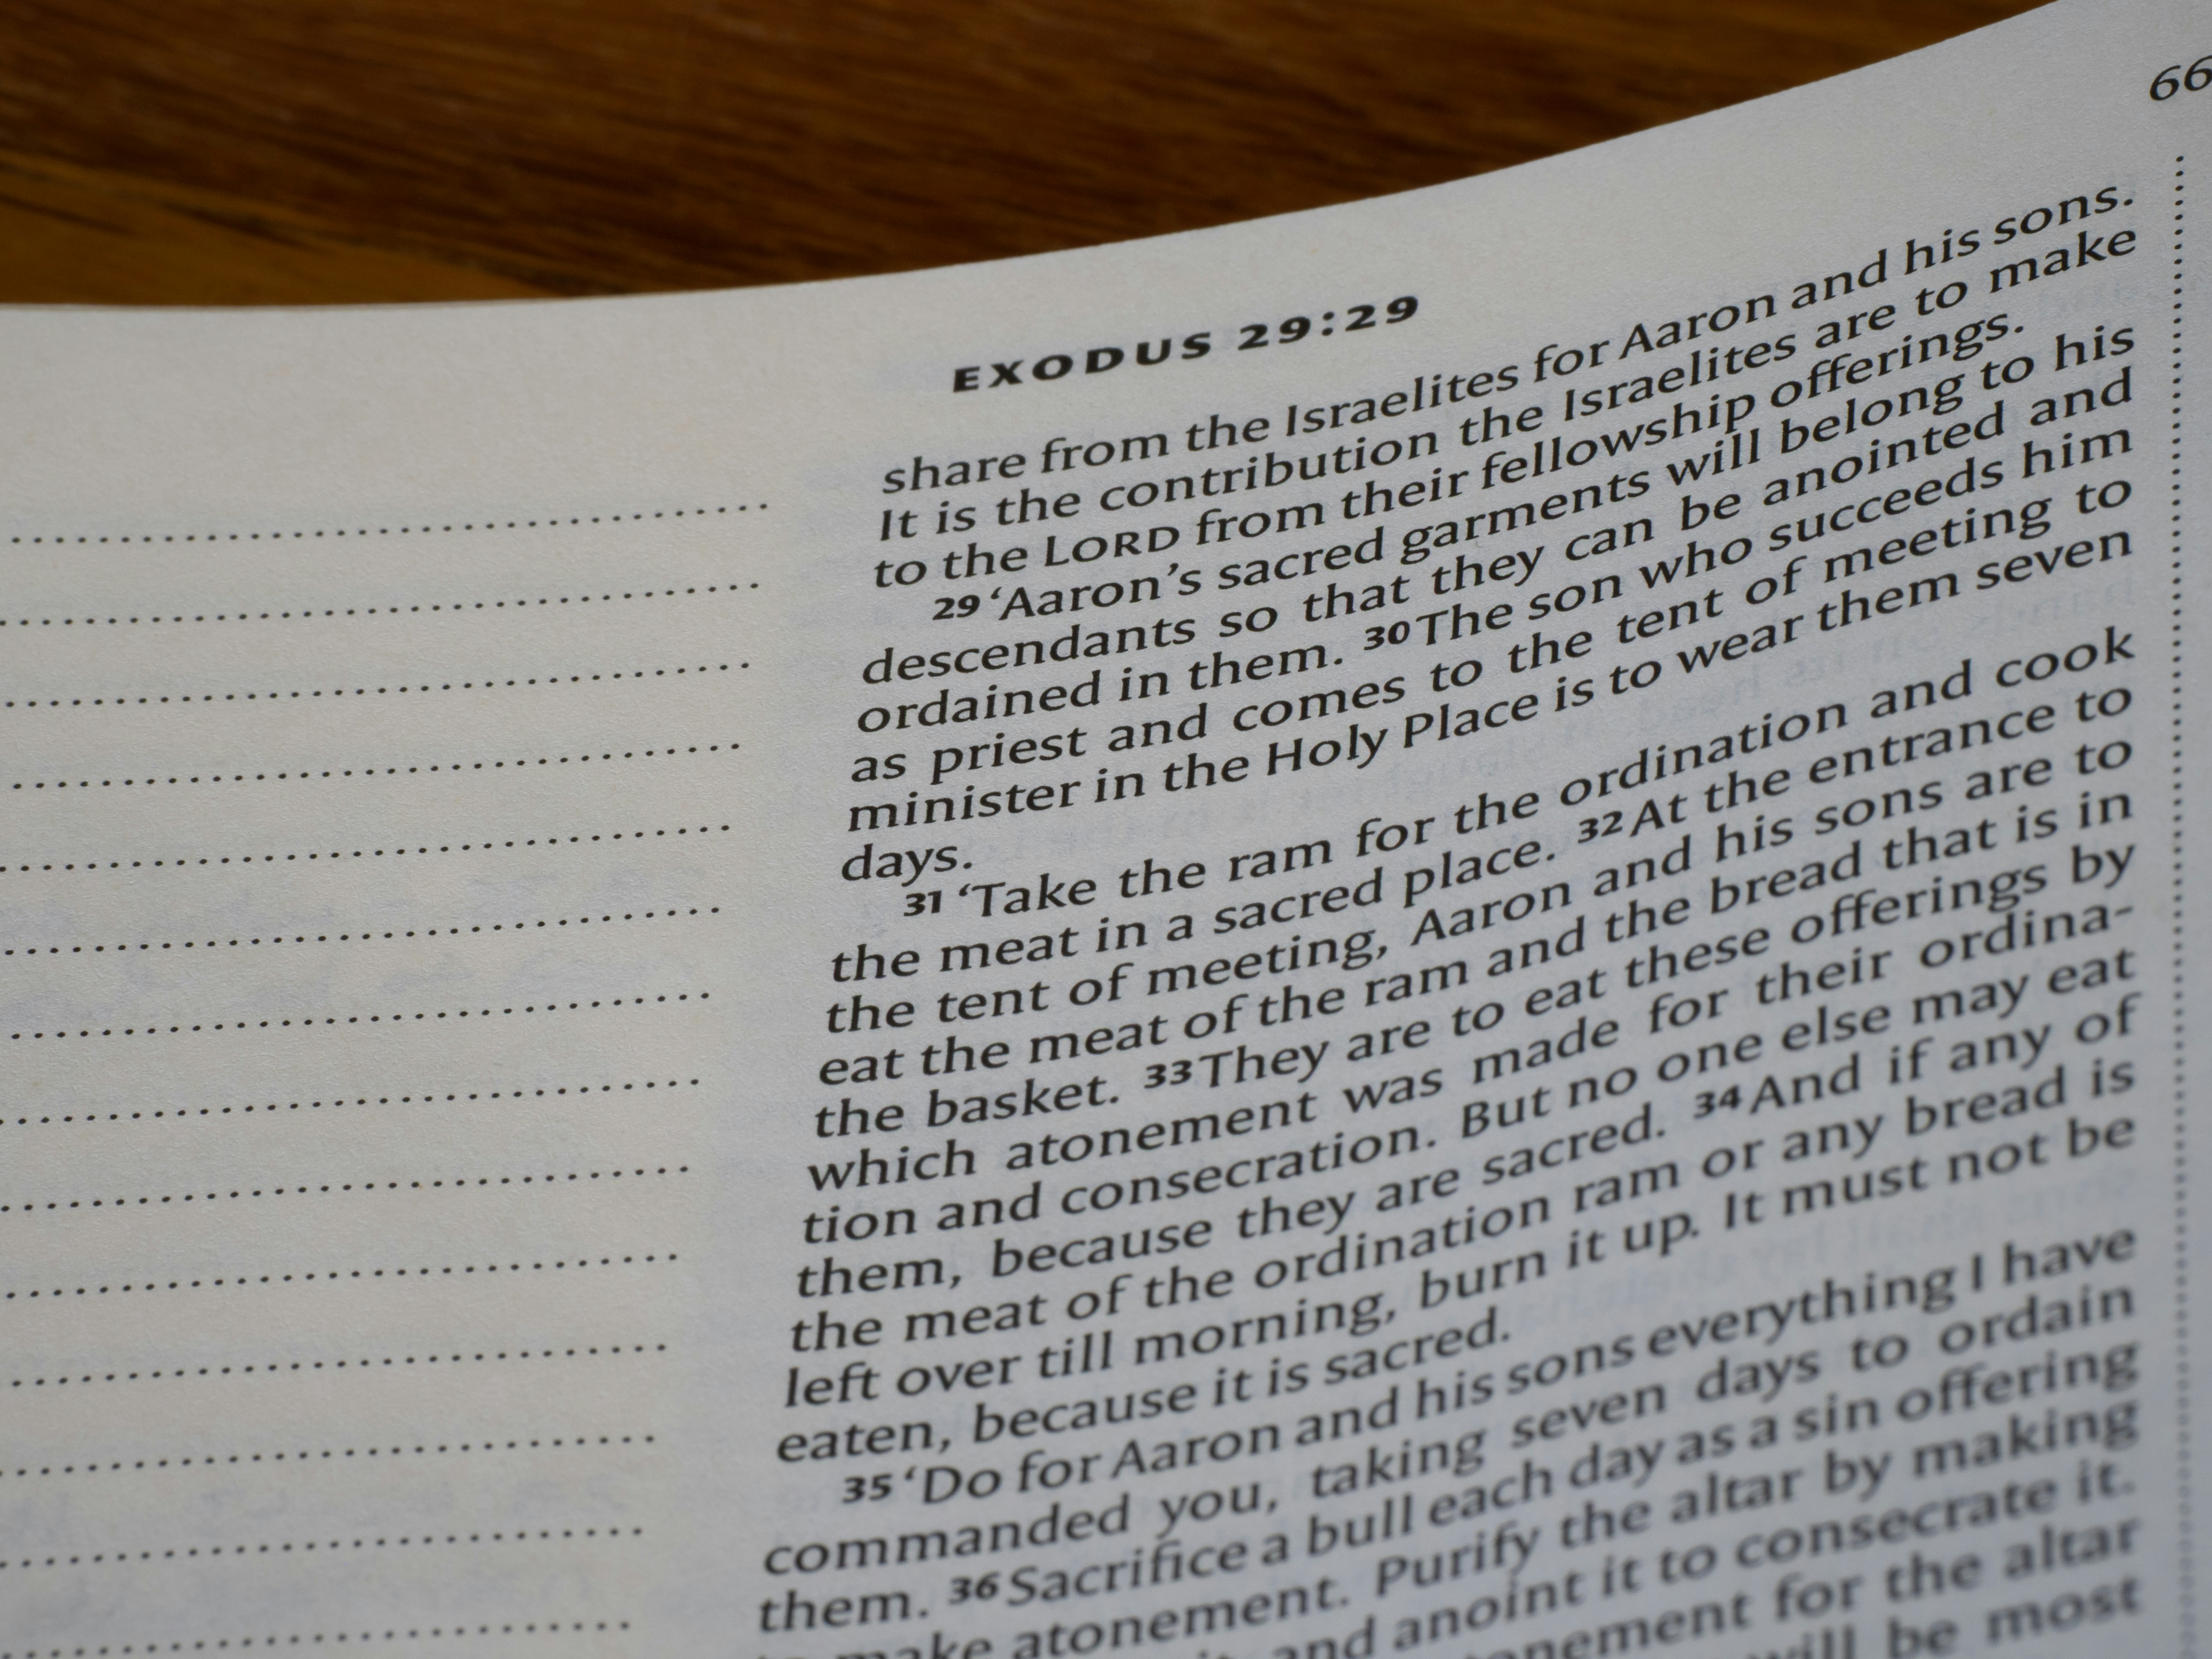 66
EXODUS 29:29
share from the Israelites for Aaron and his sons.
It is the contribution the Israelites are to make
to the LORD from their fellowship offerings.
29 ‘Aaron’s sacred garments will belong to his
descendants so that they can be anointed and
ordained in them. 30 The son who succeeds him
as priest and comes to the tent of meeting to
minister in the Holy Place is to wear them seven
days.
31 ‘Take the ram for the ordination and cook
the meat in a sacred place. 32 At the entrance to
the tent of meeting, Aaron and his sons are to
eat the meat of the ram and the bread that is in
the basket. 33 They are to eat these offerings by
which atonement was made for their ordina-
tion and consecration. But no one else may eat
them, because they are sacred. 34 And if any of
the meat of the ordination ram or any bread is
left over till morning, burn it up. It must not be
eaten, because it is sacred.
35 ‘Do for Aaron and his sons everything I have
commanded you, taking seven days to ordain
them. 36 Sacrifice a bull each day as a sin offering
to make atonement. Purify the altar by making
and anoint it to consecrate it.
for the altar
will be most